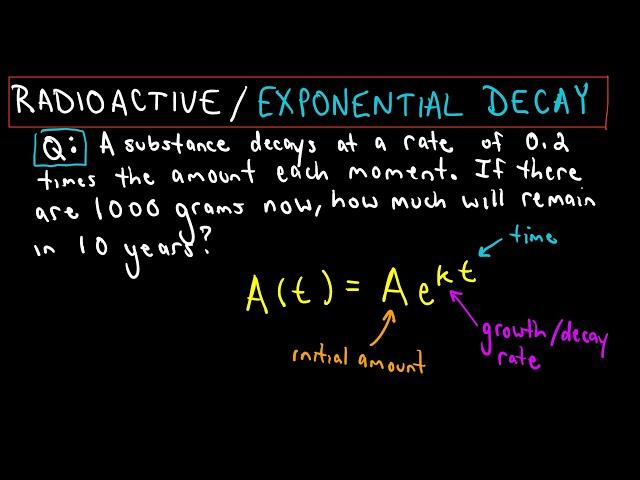 RADIOACTIVE / EXPONENTIAL DECAY
Q: A substance decays at a rate of 0.2
times the amount each moment. If there
are 1000 grams now, how much will remain
in 10 years?
time
A(t) = A e^kt
growth/decay
rate
initial amount